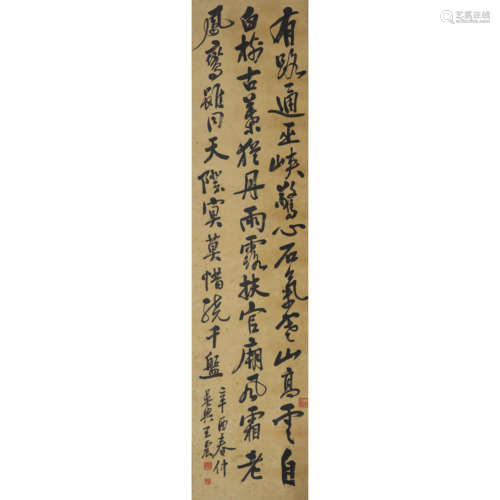 艺狐在线
有路通巫峽驚心石氣寒山高雲自
白樹古葉猶丹雨露扶官廟風霜老
鳳鸞雖同天際冥莫惜繞千盤
辛酉春仲
吳興王震